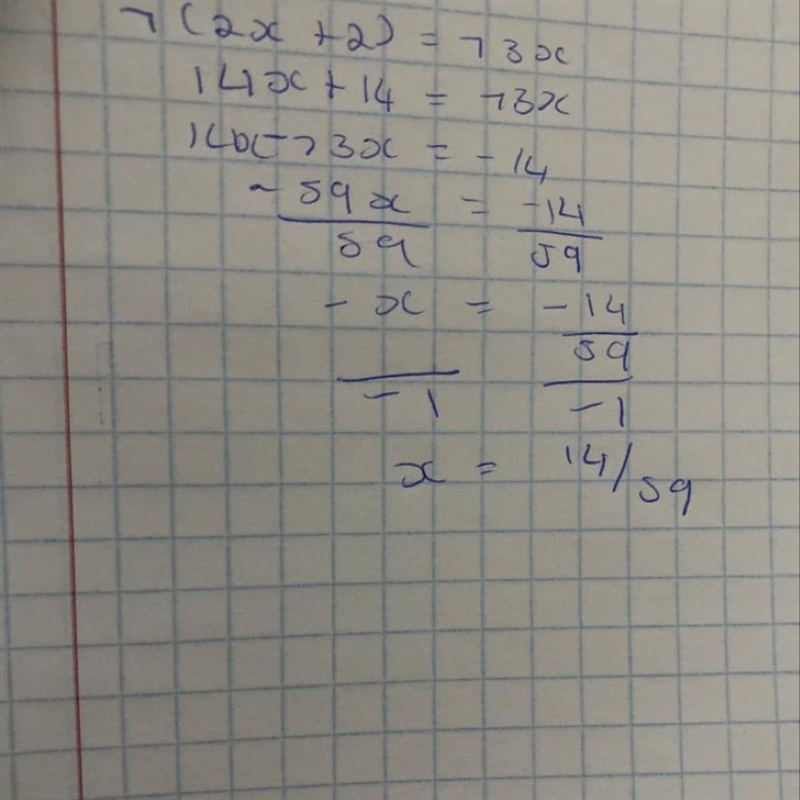 7(2x + 2) = 73x
14x + 14 = 73x
14x - 73x = -14
-59x = -14
59 59
- x = -14
59
-1 -1
x = 14/59